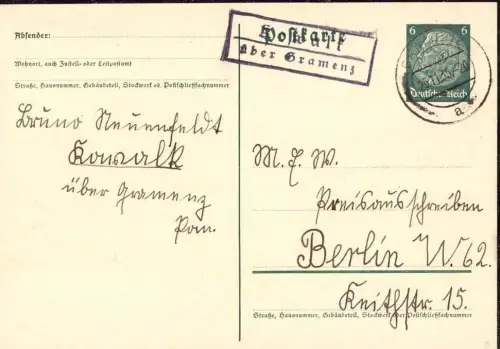 Absender:
Wohnort, auch Zustell- oder Leitpostamt
Straße, Hausnummer, Gebäudeteil, Stockwerk od. Postschließfachnummer
Bruno Neuenfeldt
Kowalk
über Gramenz
Pom.
Postkarte
Kowalk
über Gramenz
6 6
Deutsches Reich
a
M. E. W.
Preisausschreiben
Berlin W. 62.
Keithstr. 15.
Straße, Hausnummer, Gebäudeteil, Stockwerk oder Postschließfachnummer